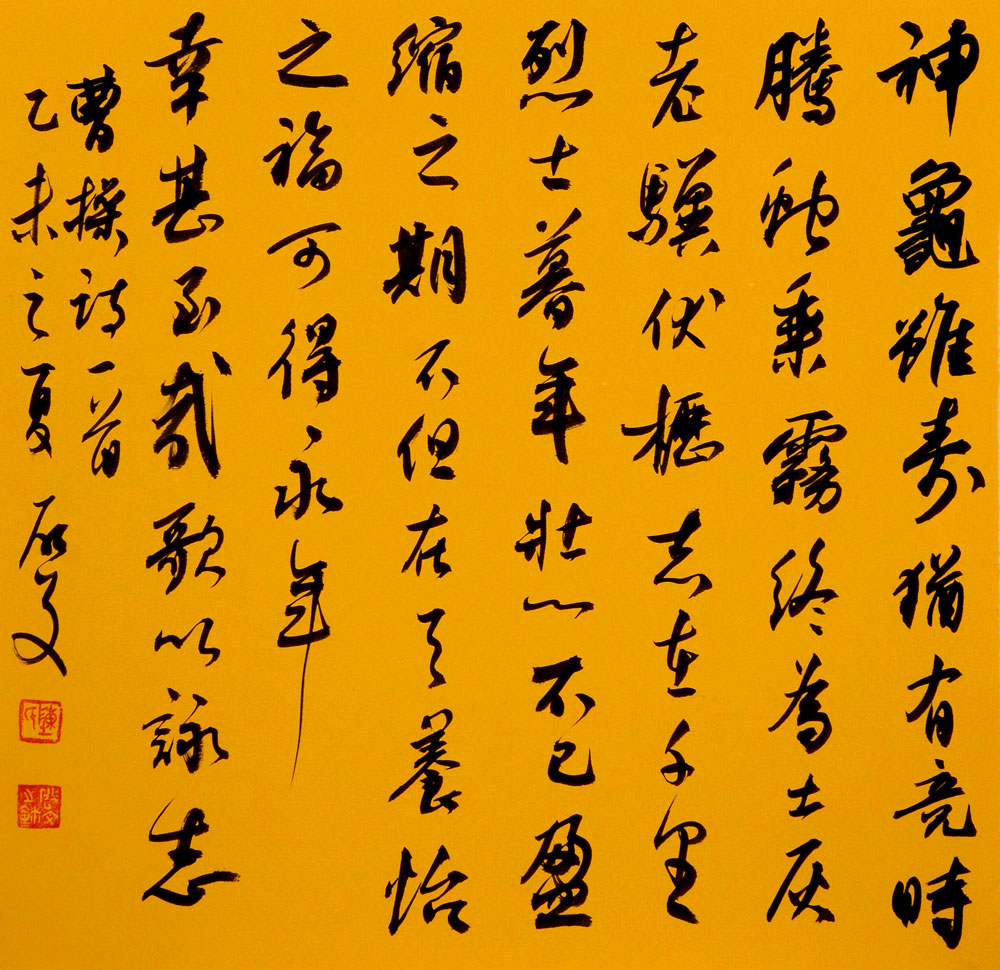 神龜雖寿猶有竟時
騰虵乘霧終為土灰
老驥伏櫪志在千里
烈士暮年壯心不已盈
縮之期不但在天養怡
之福可得永年
幸甚至哉歌以詠志
曹操詩一首
乙未之夏 启文